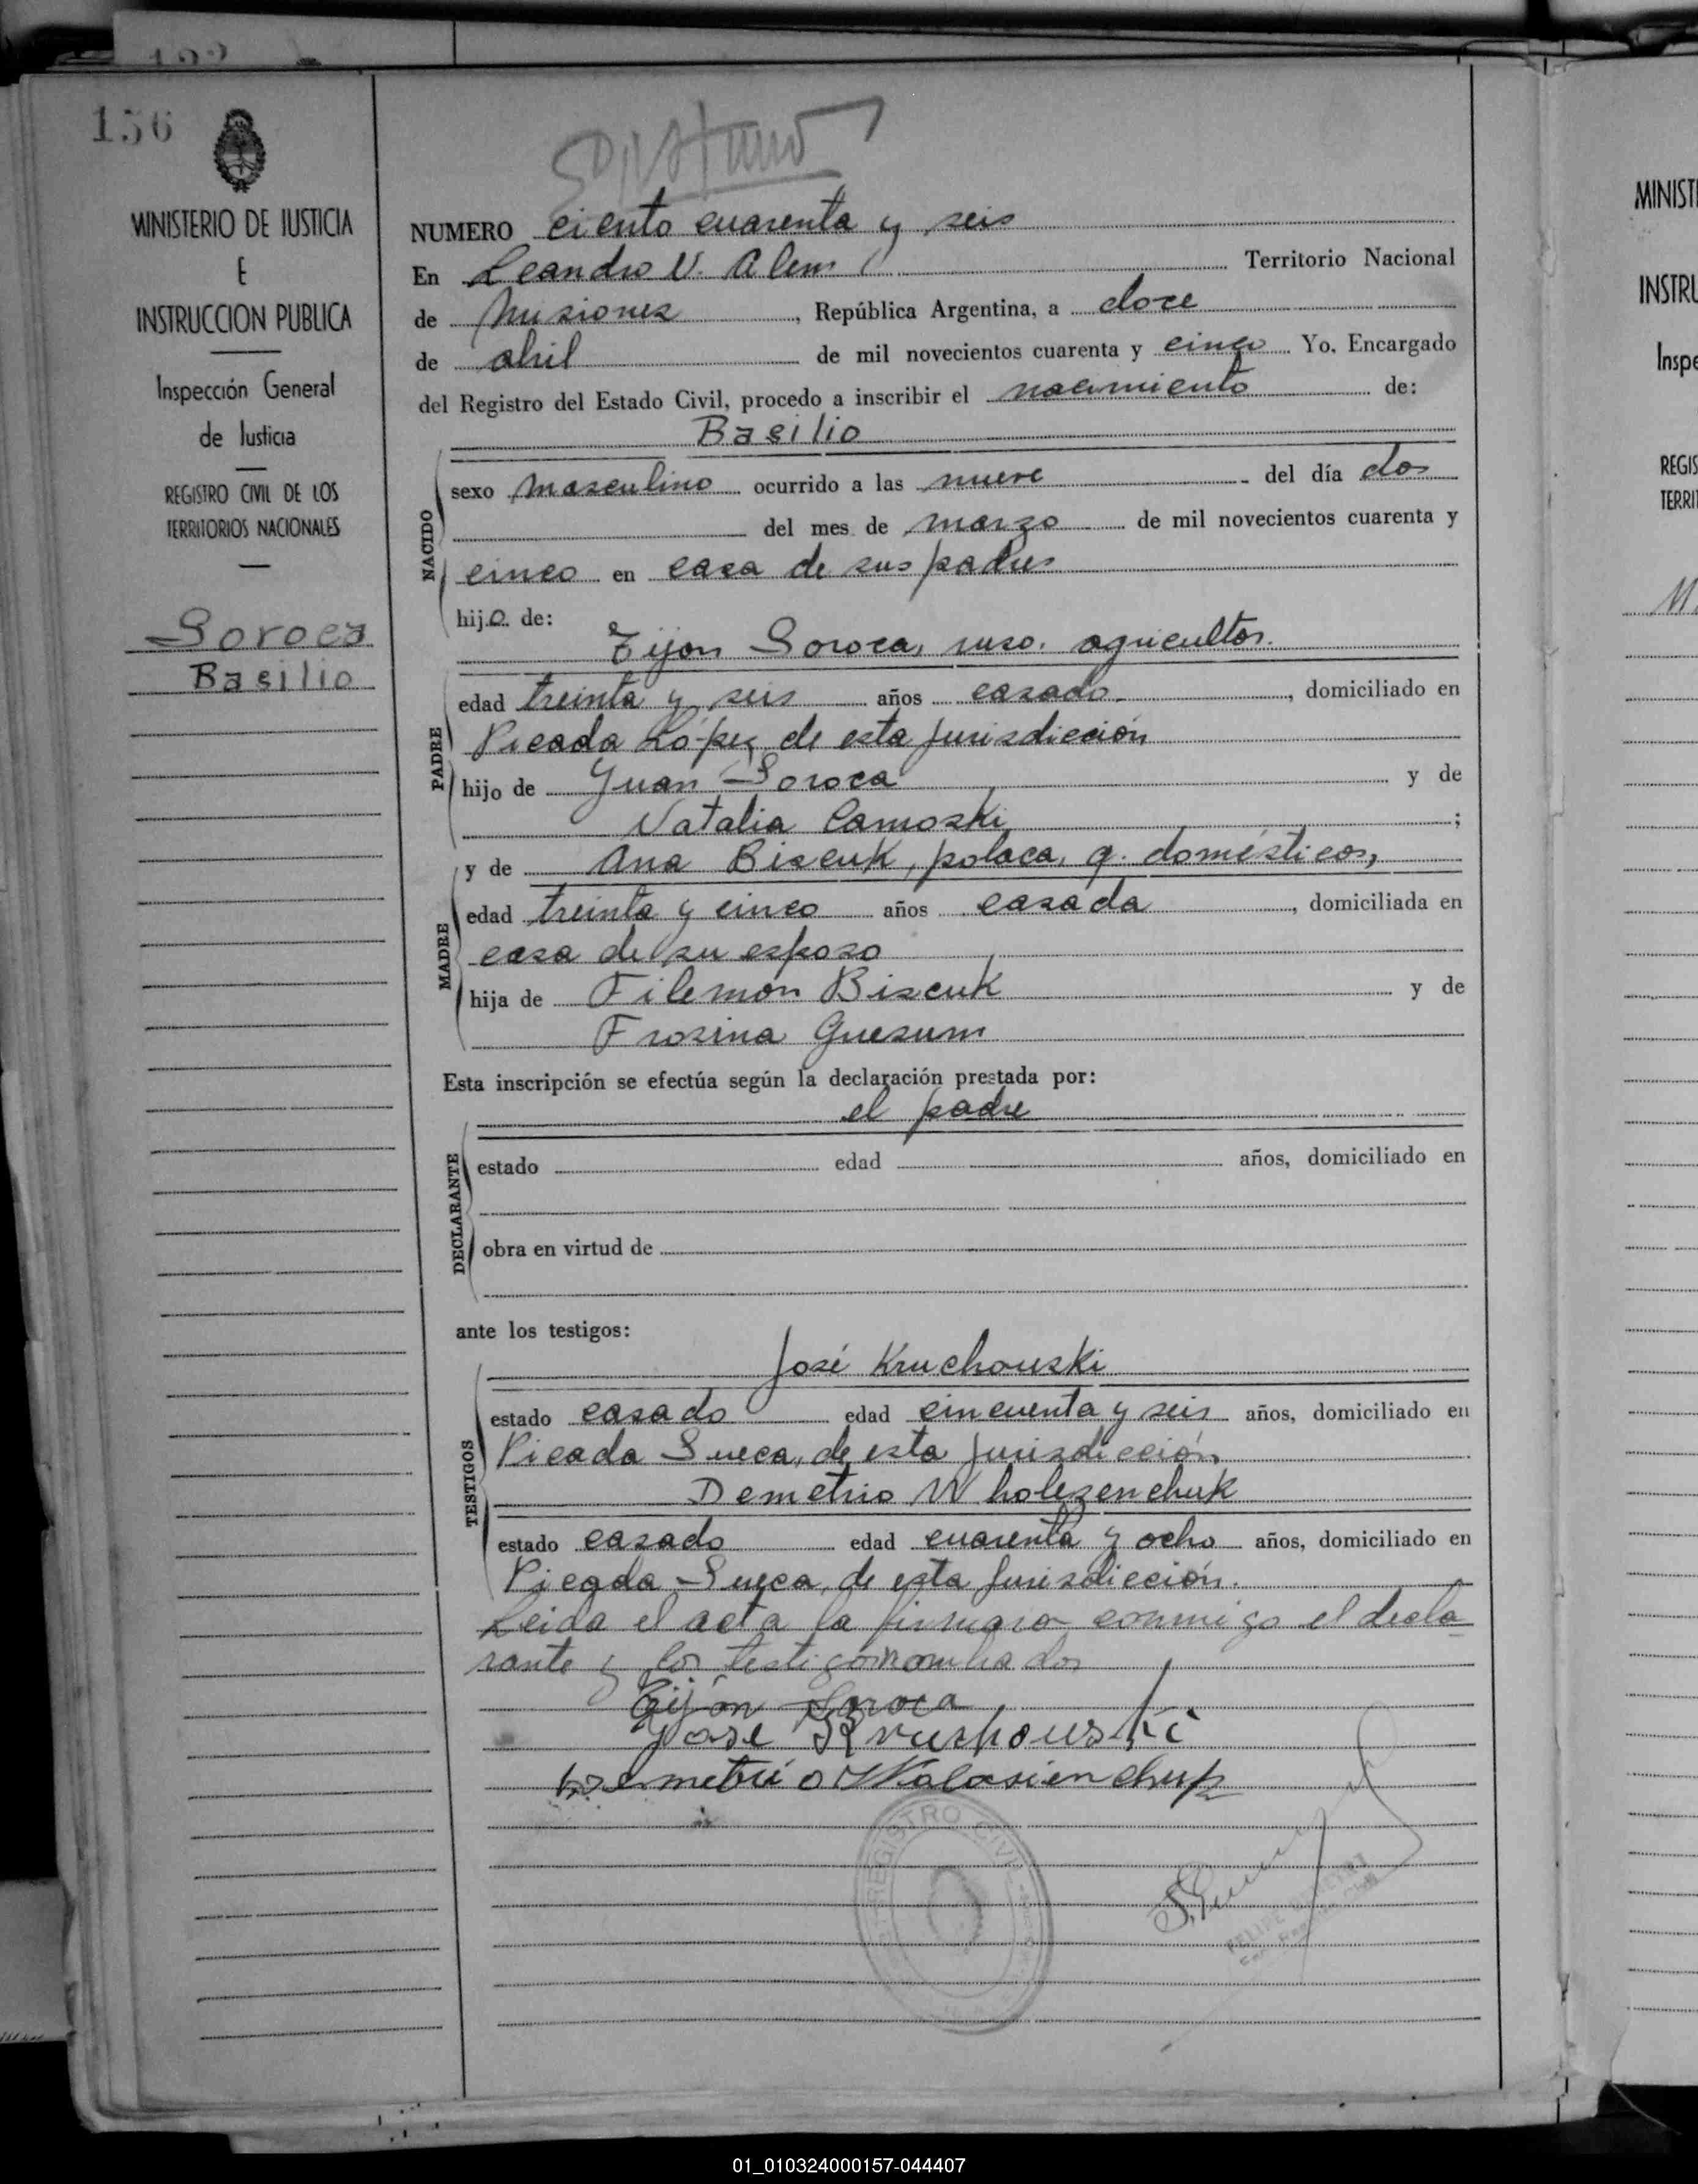 156
MINISTERIO DE JUSTICIA
E
INSTRUCCION PUBLICA
Inspección General
de Justicia
REGISTRO CIVIL DE LOS
TERRITORIOS NACIONALES
Soroca
Basilio
NUMERO ciento cuarenta y seis
En Leandro N. Alem Territorio Nacional
de Misiones, República Argentina, a doce
de abril de mil novecientos cuarenta y cinco Yo, Encargado
del Registro del Estado Civil, procedo a inscribir el nacimiento de:
Basilio
NACIDO
sexo masculino ocurrido a las nueve del día dos
del mes de marzo de mil novecientos cuarenta y
cinco en casa de sus padres
hijo de:
PADRE
Tijon Soroca, ruso, agricultor.
edad treinta y seis años casado, domiciliado en
Picada López de esta jurisdicción
hijo de Juan Soroca y de
Natalia Camoski;
MADRE
y de Ana Biscuk, polaca, q. domésticos,
edad treinta y cinco años casada, domiciliada en
casa de su esposo
hija de Filemón Biscuk y de
Frosina Guesum
Esta inscripción se efectúa según la declaración prestada por:
el padre
DECLARANTE
estado edad años, domiciliado en
obra en virtud de
ante los testigos:
TESTIGOS
José Kruchouski
estado casado edad cincuenta y seis años, domiciliado en
Picada Sueca, de esta jurisdicción,
Demetrio Wholezenchuk
estado casado edad cuarenta y ocho años, domiciliado en
Picada Sueca, de esta jurisdicción.
Leida el acta la firmaron conmigo el decla
rante y los testigos nombrados
Tijon Soroca
Jose Krushouski
Demetrio Wolosienchuk
REGISTRO CIVIL
FELIPE
MINIST
INSTRU
Inspe
REGIS
TERRI
01_010324000157-044407